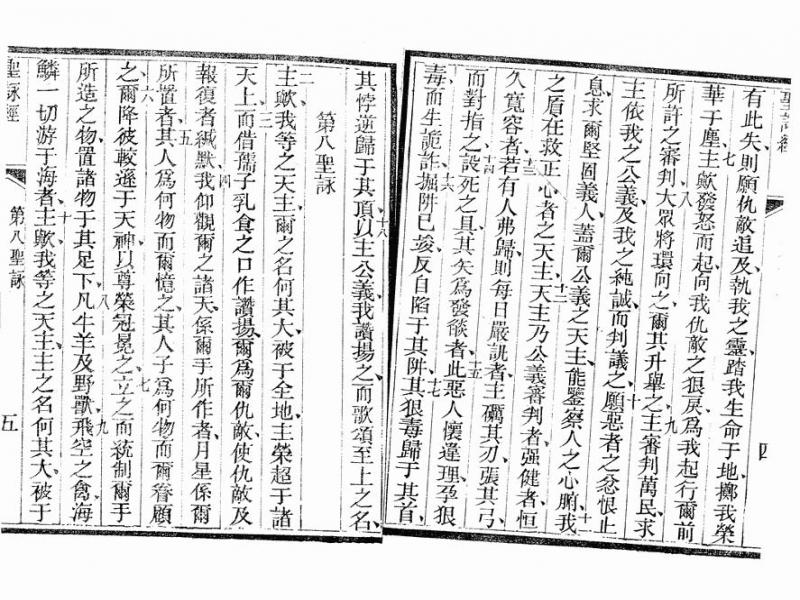 聖詠經
四
有此失則願仇敵追及執我之靈踏我生命于地擲我榮
華于塵七主歟發怒而起向我仇敵之狠戾為我起行爾前
所許之審判八大眾將環向之爾其升舉之九主審判萬民求
主依我之公義及我之純誠而判議之十願惡者之忿恨止
息求爾堅固義人蓋爾公義之天主能鑒察人之心腑十一我
之盾在救正心者之天主十二天主乃公義審判者强健者恒
久寬容者十三若有人弗歸則每日嚴訊者主礪其刃張其弓
而對指之十四設死之具其矢為發燄者十五此惡人懷違理孕狠
毒而生詭詐十六掘阱已竣反自陷于其阱十七其狠毒歸于其首
其悖逆歸于其頂十八以主公義我讚揚之而歌頌至上之名
第八聖詠
二主歟我等之天主爾之名何其大被于全地主榮超于諸
天上三而借孺子乳食之口作讚揚爾為爾仇敵使仇敵及
報復者緘默四我仰觀爾之諸天係爾手所作者月星係爾
所置者五其人為何物而爾憶之其人子為何物而爾眷顧
之六爾降彼較遜于天神以尊榮冠冕之七立之而統制爾手
所造之物置諸物于其足下八凡牛羊及野獸九飛空之禽海
鱗一切游于海者十主歟我等之天主主之名何其大被于
聖詠經
第八聖詠
五